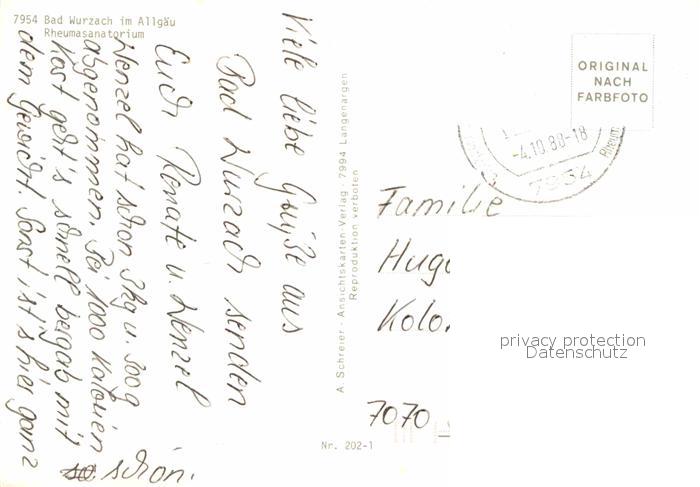 7954 Bad Wurzach im Allgäu
Rheumasanatorium
Viele liebe Grüße aus
Bad Wurzach senden
Euch Renate u. Wenzel
Wenzel hat schon 3kg u. 300g
abgenommen. Bei 1000 Kalorien
Kost geht's schnell bergab mit
dem Gewicht. Sonst ist's hier ganz
schön.
A. Schreier - Ansichtskarten-Verlag · 7994 Langenargen
Reproduktion verboten
Nr. 202-1
ORIGINAL
NACH
FARBFOTO
-4.10.88-18
7954
Rheum
Familie
Hug
Kolo
7070
privacy protection
Datenschutz